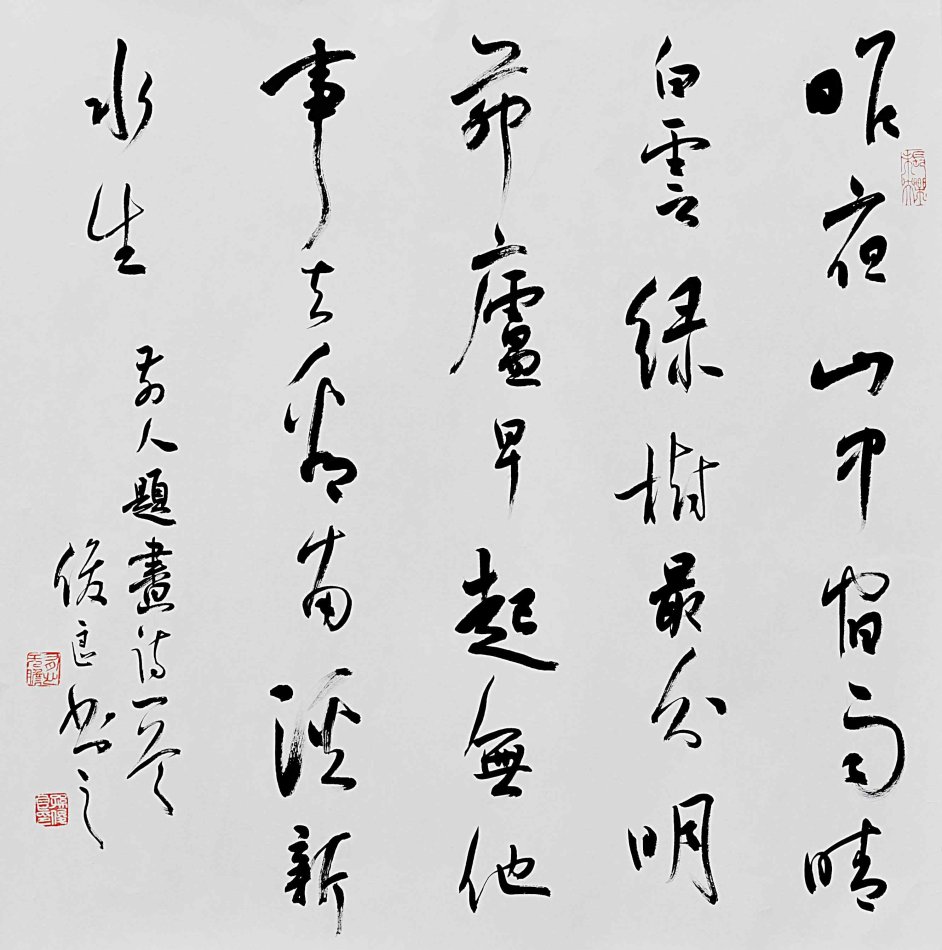 昨夜山中宿雨晴
白雲綠樹最分明
茅廬早起無他
事去看南溪新
水生
前人題畫詩一
俊良書之